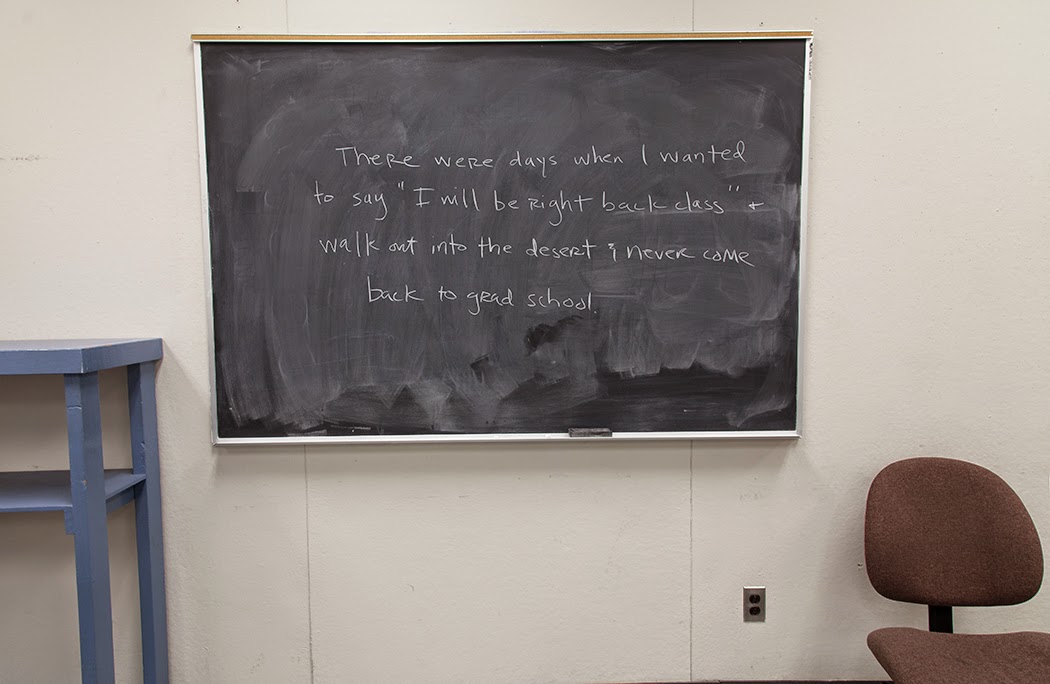 There were days when I wanted
to say "I will be right back class" +
walk out into the desert & never come
back to grad school.